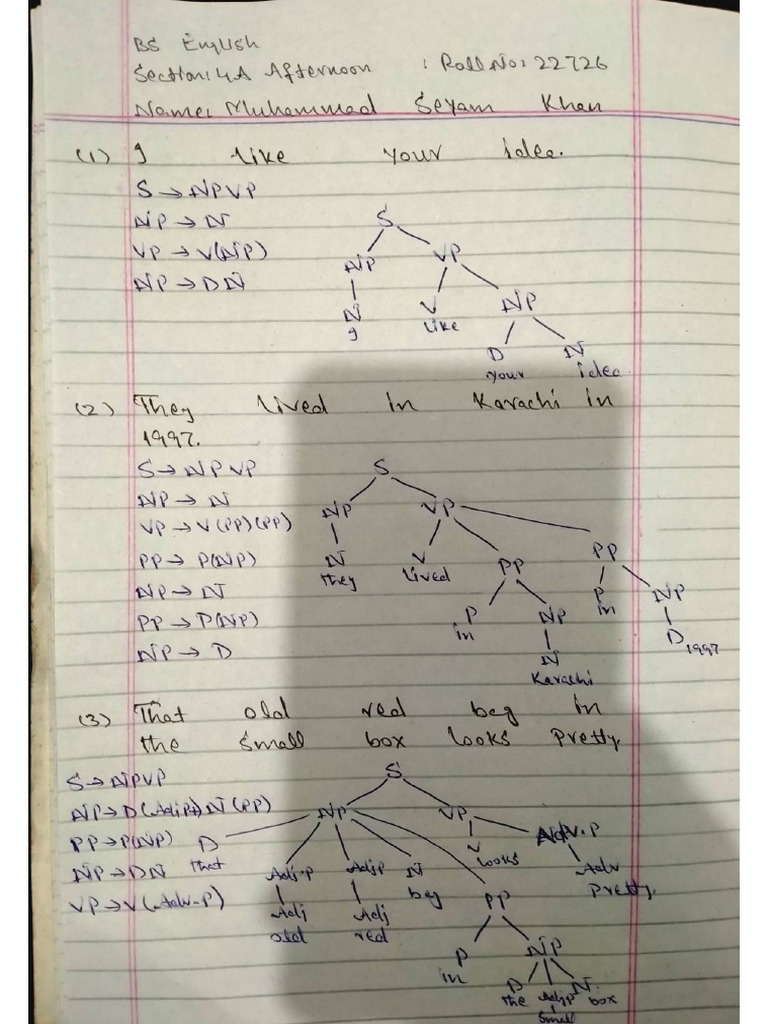 BS English
Section: 4A Afternoon : Roll No: 22726
Name: Muhammad Seyam Khan
(1) I like your idea.
S → NP VP
NP → N
VP → V(NP)
NP → D N
S
NP VP
N V NP
I like
D N
your idea
(2) They lived in Karachi in
1997.
S → NP VP
NP → N
VP → V (PP) (PP)
PP → P(NP)
NP → N
PP → P(NP)
NP → D
S
NP VP
N V PP PP
They lived
P NP P NP
in in
N D 1997
Karachi
(3) That old red bag in
the small box looks Pretty.
S → NP VP
NP → D (AdjP+) N (PP)
PP → P(NP)
NP → D N
VP → V (Adv-P)
S
NP VP
D V Adv.P
That looks
Adj.P AdjP N PP Adv
bag Pretty.
Adj Adj
old red
P NP
in
D AdjP N
the small box